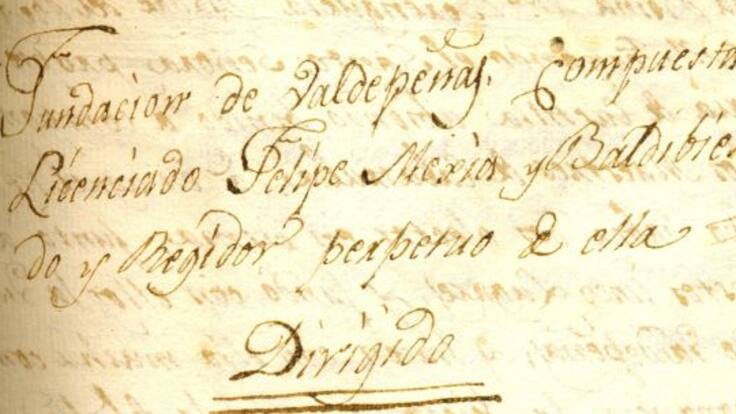 Fundacion de Valdepeñas. Compuesta
Licenciado Felipe Mexia y Baldibie
do y Regidor perpetuo de ella
Dirigido